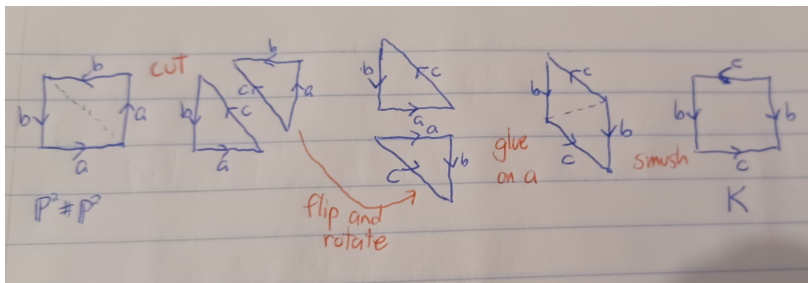 b
b
a
a
P² # P²
cut
b
c
a
b
c
a
flip and
rotate
b
c
a
a
c
b
glue
on a
c
b
b
c
smush
c
b
b
c
K